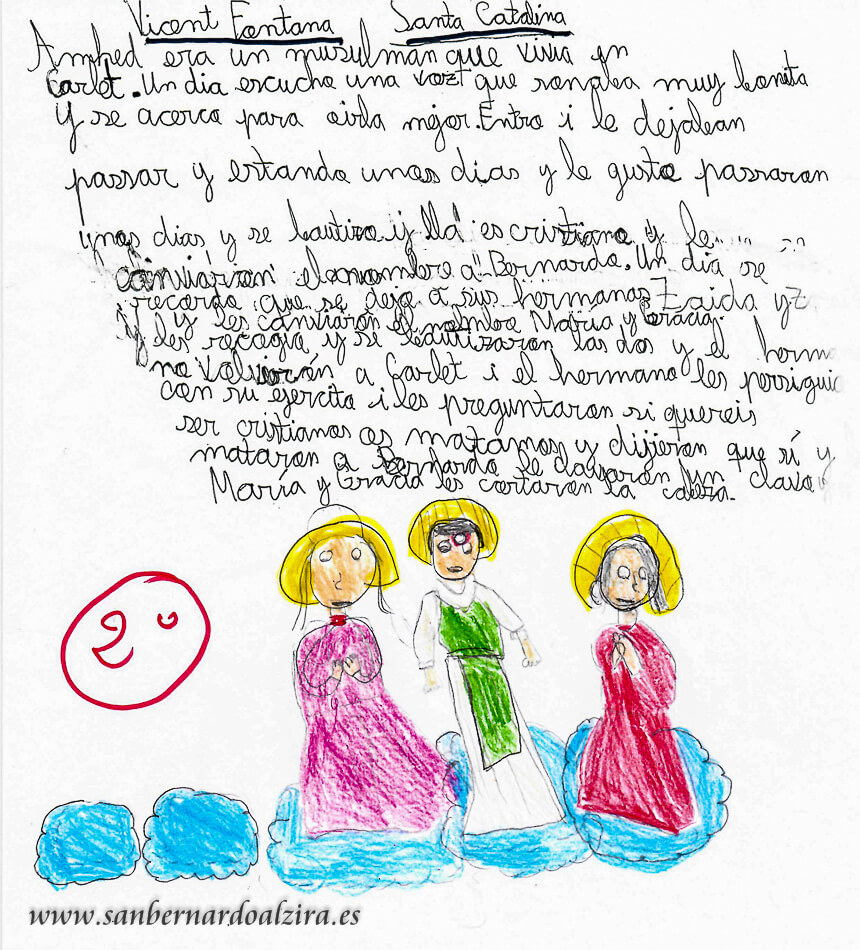 Vicent Fontana Santa Catalina
Amhed era un musulmán que vivia en
Carlet. Un dia escucho una vozt que sonaba muy bonita
Y se acerco para oirla mejor. Entro i le dejaban
passar y estando unos dias y le gusto passaron
unos dias y se bautizo y lla es cristiano y le
canviaron el nombre a Bernardo. Un dia se
recordo que se dejo a sus hermanas Zaida y Z
y les canviaron el nombre Maria y Gracia.
y les recogio y se bautizaron las dos y el herma
no volvieron a Carlet i el hermano les persiguio
con su ejercito i les preguntaron si quereis
ser cristianos os matamos y dijieron que sí y
mataron a Bernardo le clavaron un clavo y
María y Gracia les cortaron la cabeza.
2º
www.sanbernardoalzira.es